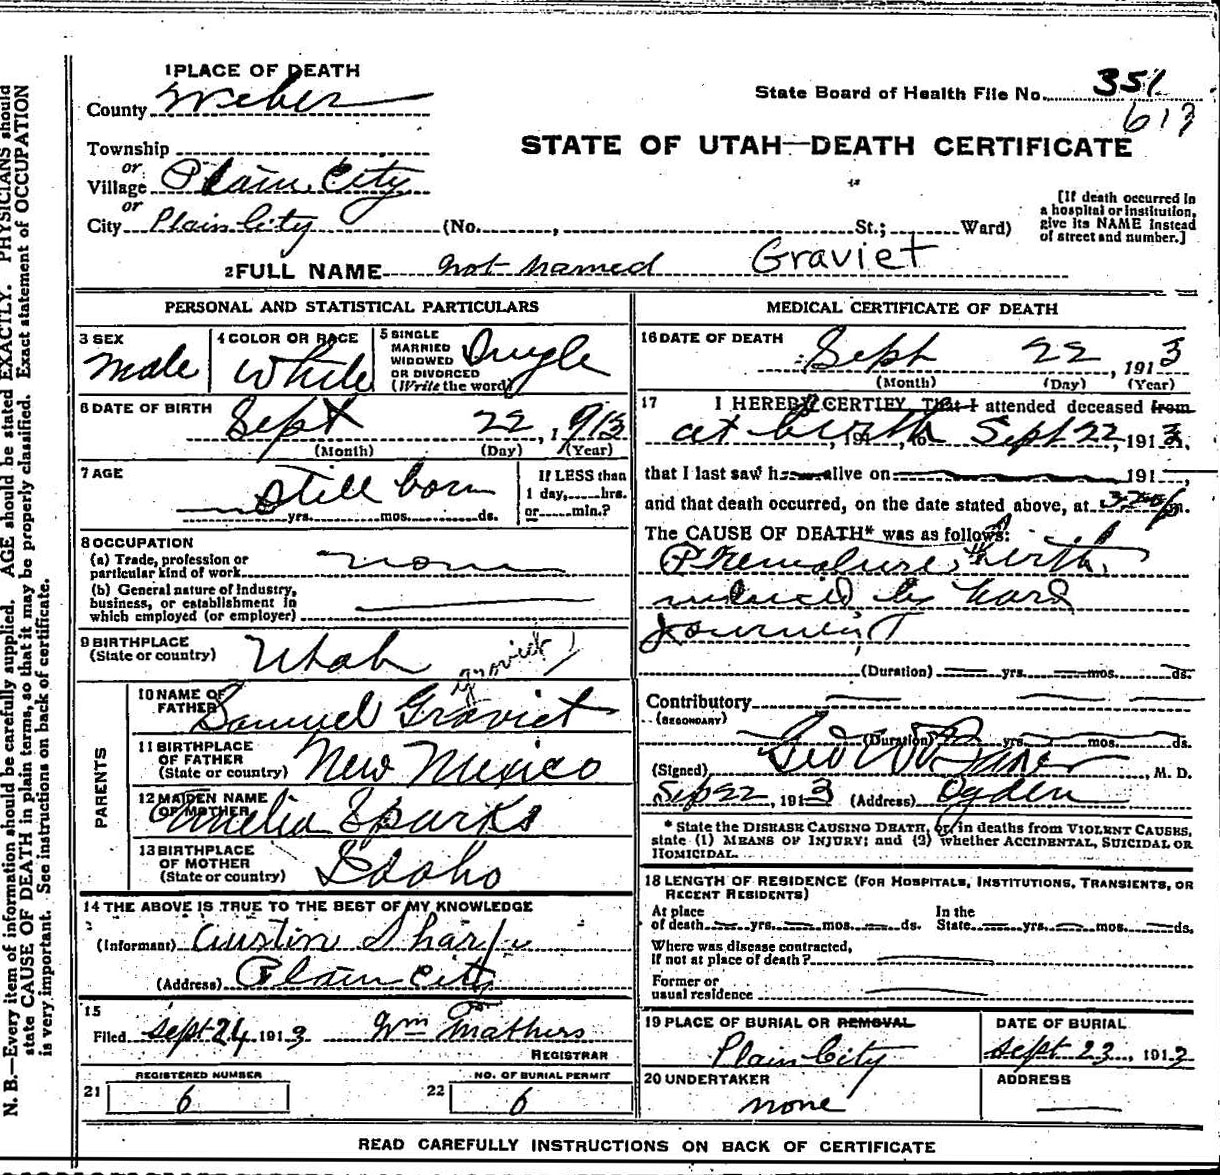 N. B.—Every item of information should be carefully supplied. AGE should be stated EXACTLY. PHYSICIANS should
state CAUSE OF DEATH in plain terms, so that it may be properly classified. Exact statement of OCCUPATION
is very important. See instructions on back of certificate.
1 PLACE OF DEATH
County Weber
State Board of Health File No. 351
617
STATE OF UTAH—DEATH CERTIFICATE
Township
or
Village Plain City
or
City Plain City (No. , St.; Ward)
[If death occurred in
a hospital or institution,
give its NAME instead
of street and number.]
2 FULL NAME not named Graviet
PERSONAL AND STATISTICAL PARTICULARS
3 SEX
Male
4 COLOR OR RACE
White
5 SINGLE
MARRIED
WIDOWED
OR DIVORCED
(Write the word)
Single
6 DATE OF BIRTH
Sept 22, 1913
(Month) (Day) (Year)
7 AGE
Still born
yrs. mos. ds.
If LESS than
1 day, hrs.
or min.?
8 OCCUPATION
(a) Trade, profession or
particular kind of work
(b) General nature of industry,
business, or establishment in
which employed (or employer)
9 BIRTHPLACE
(State or country) Utah
graviet
PARENTS
10 NAME OF
FATHER Samuel Graviet
11 BIRTHPLACE
OF FATHER
(State or country) New Mexico
12 MAIDEN NAME
OF MOTHER Amelia Sparks
13 BIRTHPLACE
OF MOTHER
(State or country) Idaho
14 THE ABOVE IS TRUE TO THE BEST OF MY KNOWLEDGE
(Informant) Austin Sharp
(Address) Plain City
15
Filed Sept 24, 1913 Wm Mathers
REGISTRAR
REGISTERED NUMBER
21 6
NO. OF BURIAL PERMIT
22 6
MEDICAL CERTIFICATE OF DEATH
16 DATE OF DEATH
Sept 22, 1913
(Month) (Day) (Year)
17 I HEREBY CERTIFY, That I attended deceased from
at birth, 191 , to Sept 22, 1913,
that I last saw h alive on 191 ,
and that death occurred, on the date stated above, at m.
The CAUSE OF DEATH* was as follows:
Premature birth,
induced by hard
(Duration) yrs. mos. ds.
Contributory
(SECONDARY)
(Duration) yrs. mos. ds.
(Signed) Geo W , M. D.
Sep 22, 1913 (Address) Ogden
* State the DISEASE CAUSING DEATH, or, in deaths from VIOLENT CAUSES,
state (1) MEANS OF INJURY; and (2) whether ACCIDENTAL, SUICIDAL OR
HOMICIDAL.
18 LENGTH OF RESIDENCE (FOR HOSPITALS, INSTITUTIONS, TRANSIENTS, OR
RECENT RESIDENTS)
At place
of death yrs. mos. ds.
In the
State yrs. mos. ds.
Where was disease contracted,
if not at place of death?
Former or
usual residence
19 PLACE OF BURIAL OR REMOVAL
Plain City
DATE OF BURIAL
Sept 23, 1913
20 UNDERTAKER
none
ADDRESS
READ CAREFULLY INSTRUCTIONS ON BACK OF CERTIFICATE